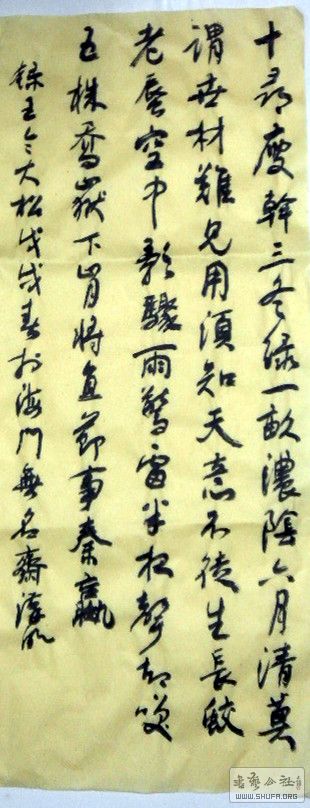 十尋瘦幹三冬绿一畝濃陰六月清莫
謂世材難見用須知天意不徒生長蛟
老蜃空中影驟雨驚雷半夜聲却笑
五株喬嶽下肯將直節事秦嬴
錄王令大松戊戌春於海門無名齋
书艺公社
WWW.SHUFA.ORG